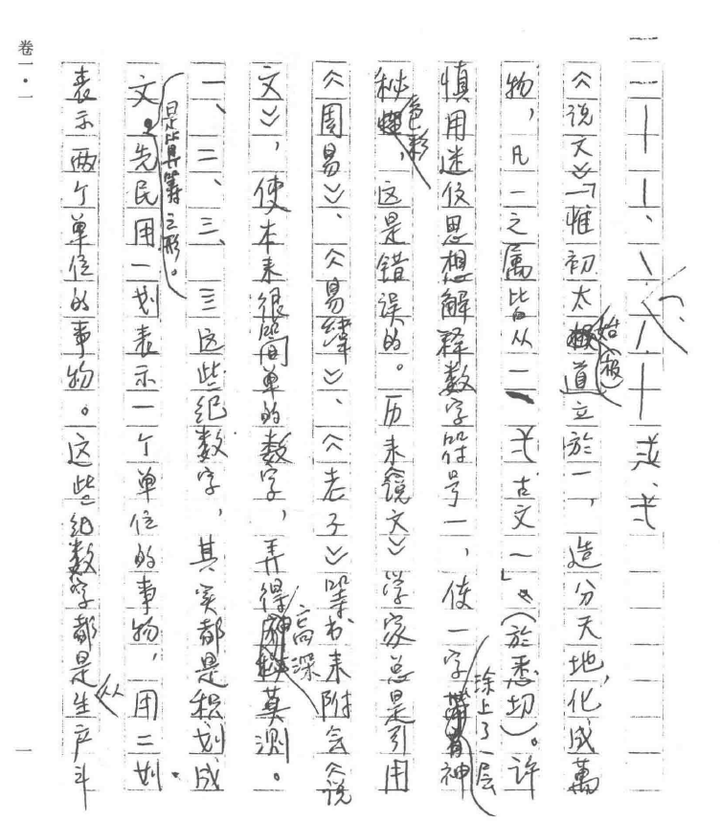 卷一·一
一 一 丨 丨、丶、丿、十 弌、弌
《说文》「惟初太始(极)道立於一，造分天地，化成萬
物，凡一之属皆从一、弌古文一」。(於悉切)。许
慎用迷信思想解释数字符号一，使一字涂上了一层神
秘色彩，这是错误的。历来《说文》学家总是引用
《周易》、《易纬》、《老子》等书来附会《说
文》，使本来很简单的数字，弄得高深莫测。
一、二、三、亖这些纪数字，其实都是积划成
文。是算筹之形。先民用一划表示一个单位的事物，用二划
表示两个单位的事物。这些纪数字都是从生产斗
一